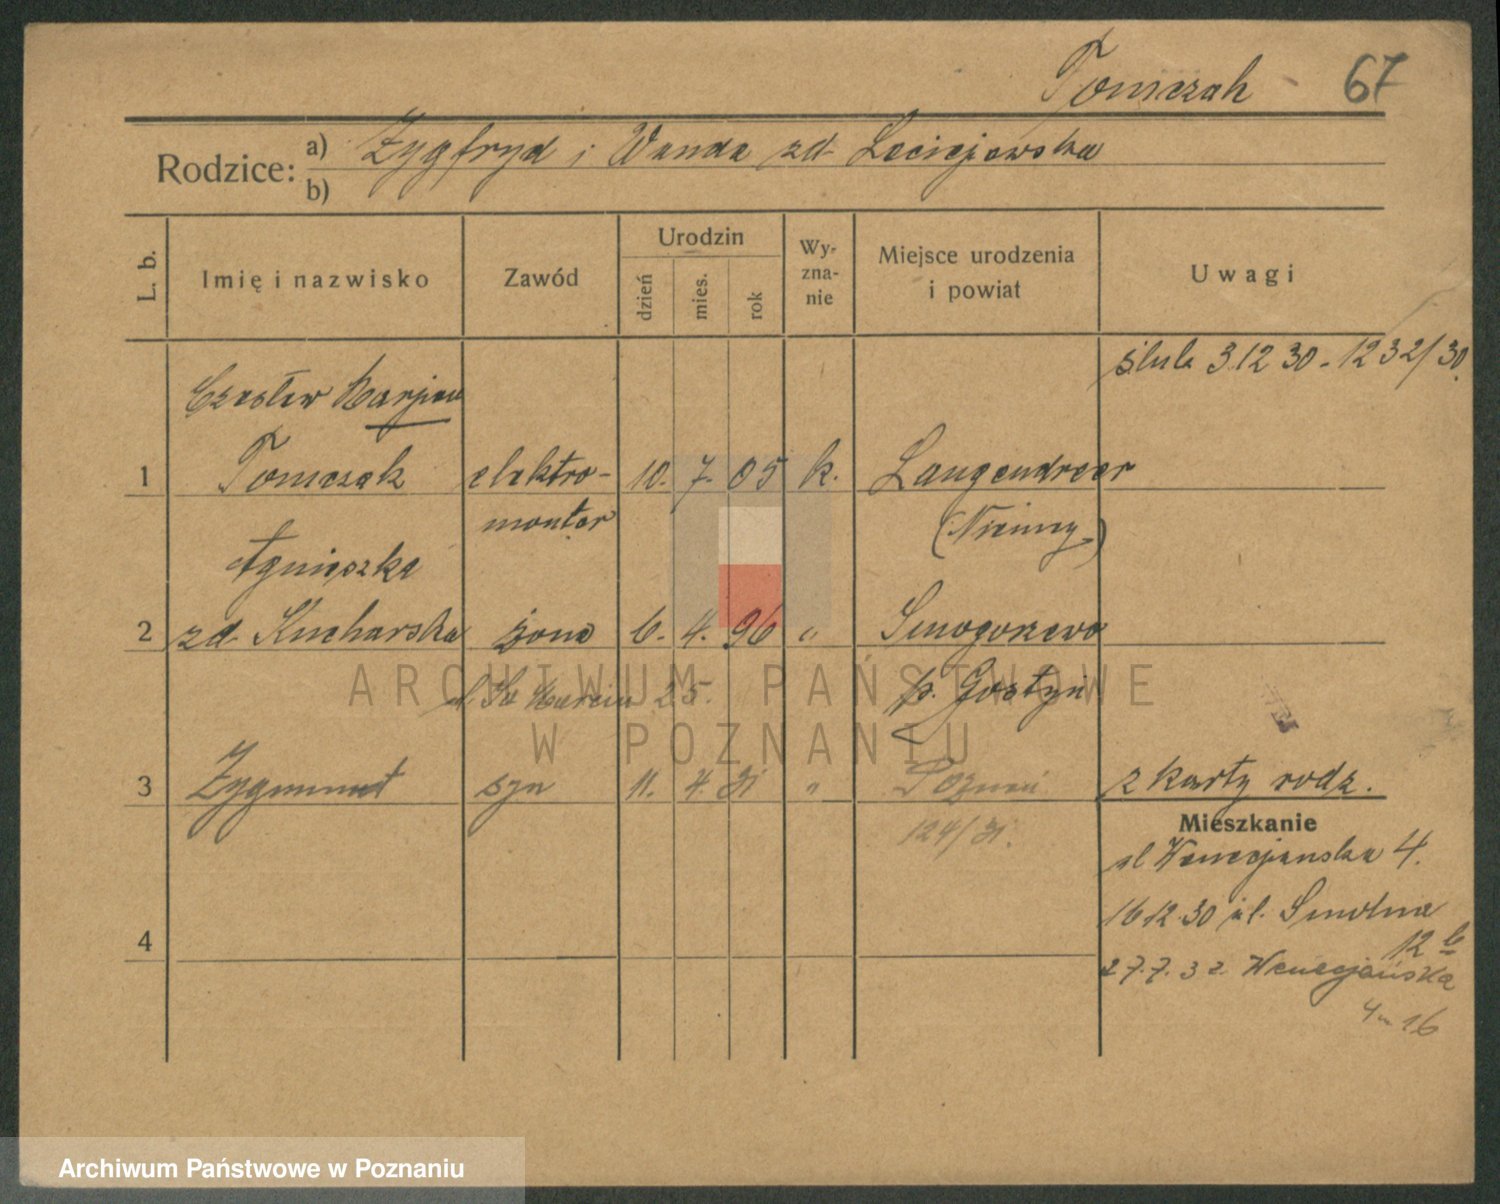 Tomczak 67
Rodzice: a) Zygfryd i Wanda zd. Leciejewska
b)
L. b.
Imię i nazwisko
Zawód
Urodzin
dzień
mies.
rok
Wy-
zna-
nie
Miejsce urodzenia
i powiat
Uwagi
ślub 3.12 30 - 1232/30.
Czesław Marjan
1 Tomczak elektro- 10. 7. 05 k. Langendreer
monter (Niemcy)
Agnieszka
2 zd. Kucharska żona 6. 4. 96 " Smogorzewo
ul. Św Marcin 25. p. Gostyń
3 Zygmunt syn 11. 4. 31 " Poznań z karty rodz.
124/31.
Mieszkanie
ul Wenecjańska 4.
16 12 30 ul. Smolna
12 b
4
27.7.32. Wenecjańska
4 m 16
ARCHIWUM PAŃSTWOWE
W POZNANIU
Archiwum Państwowe w Poznaniu